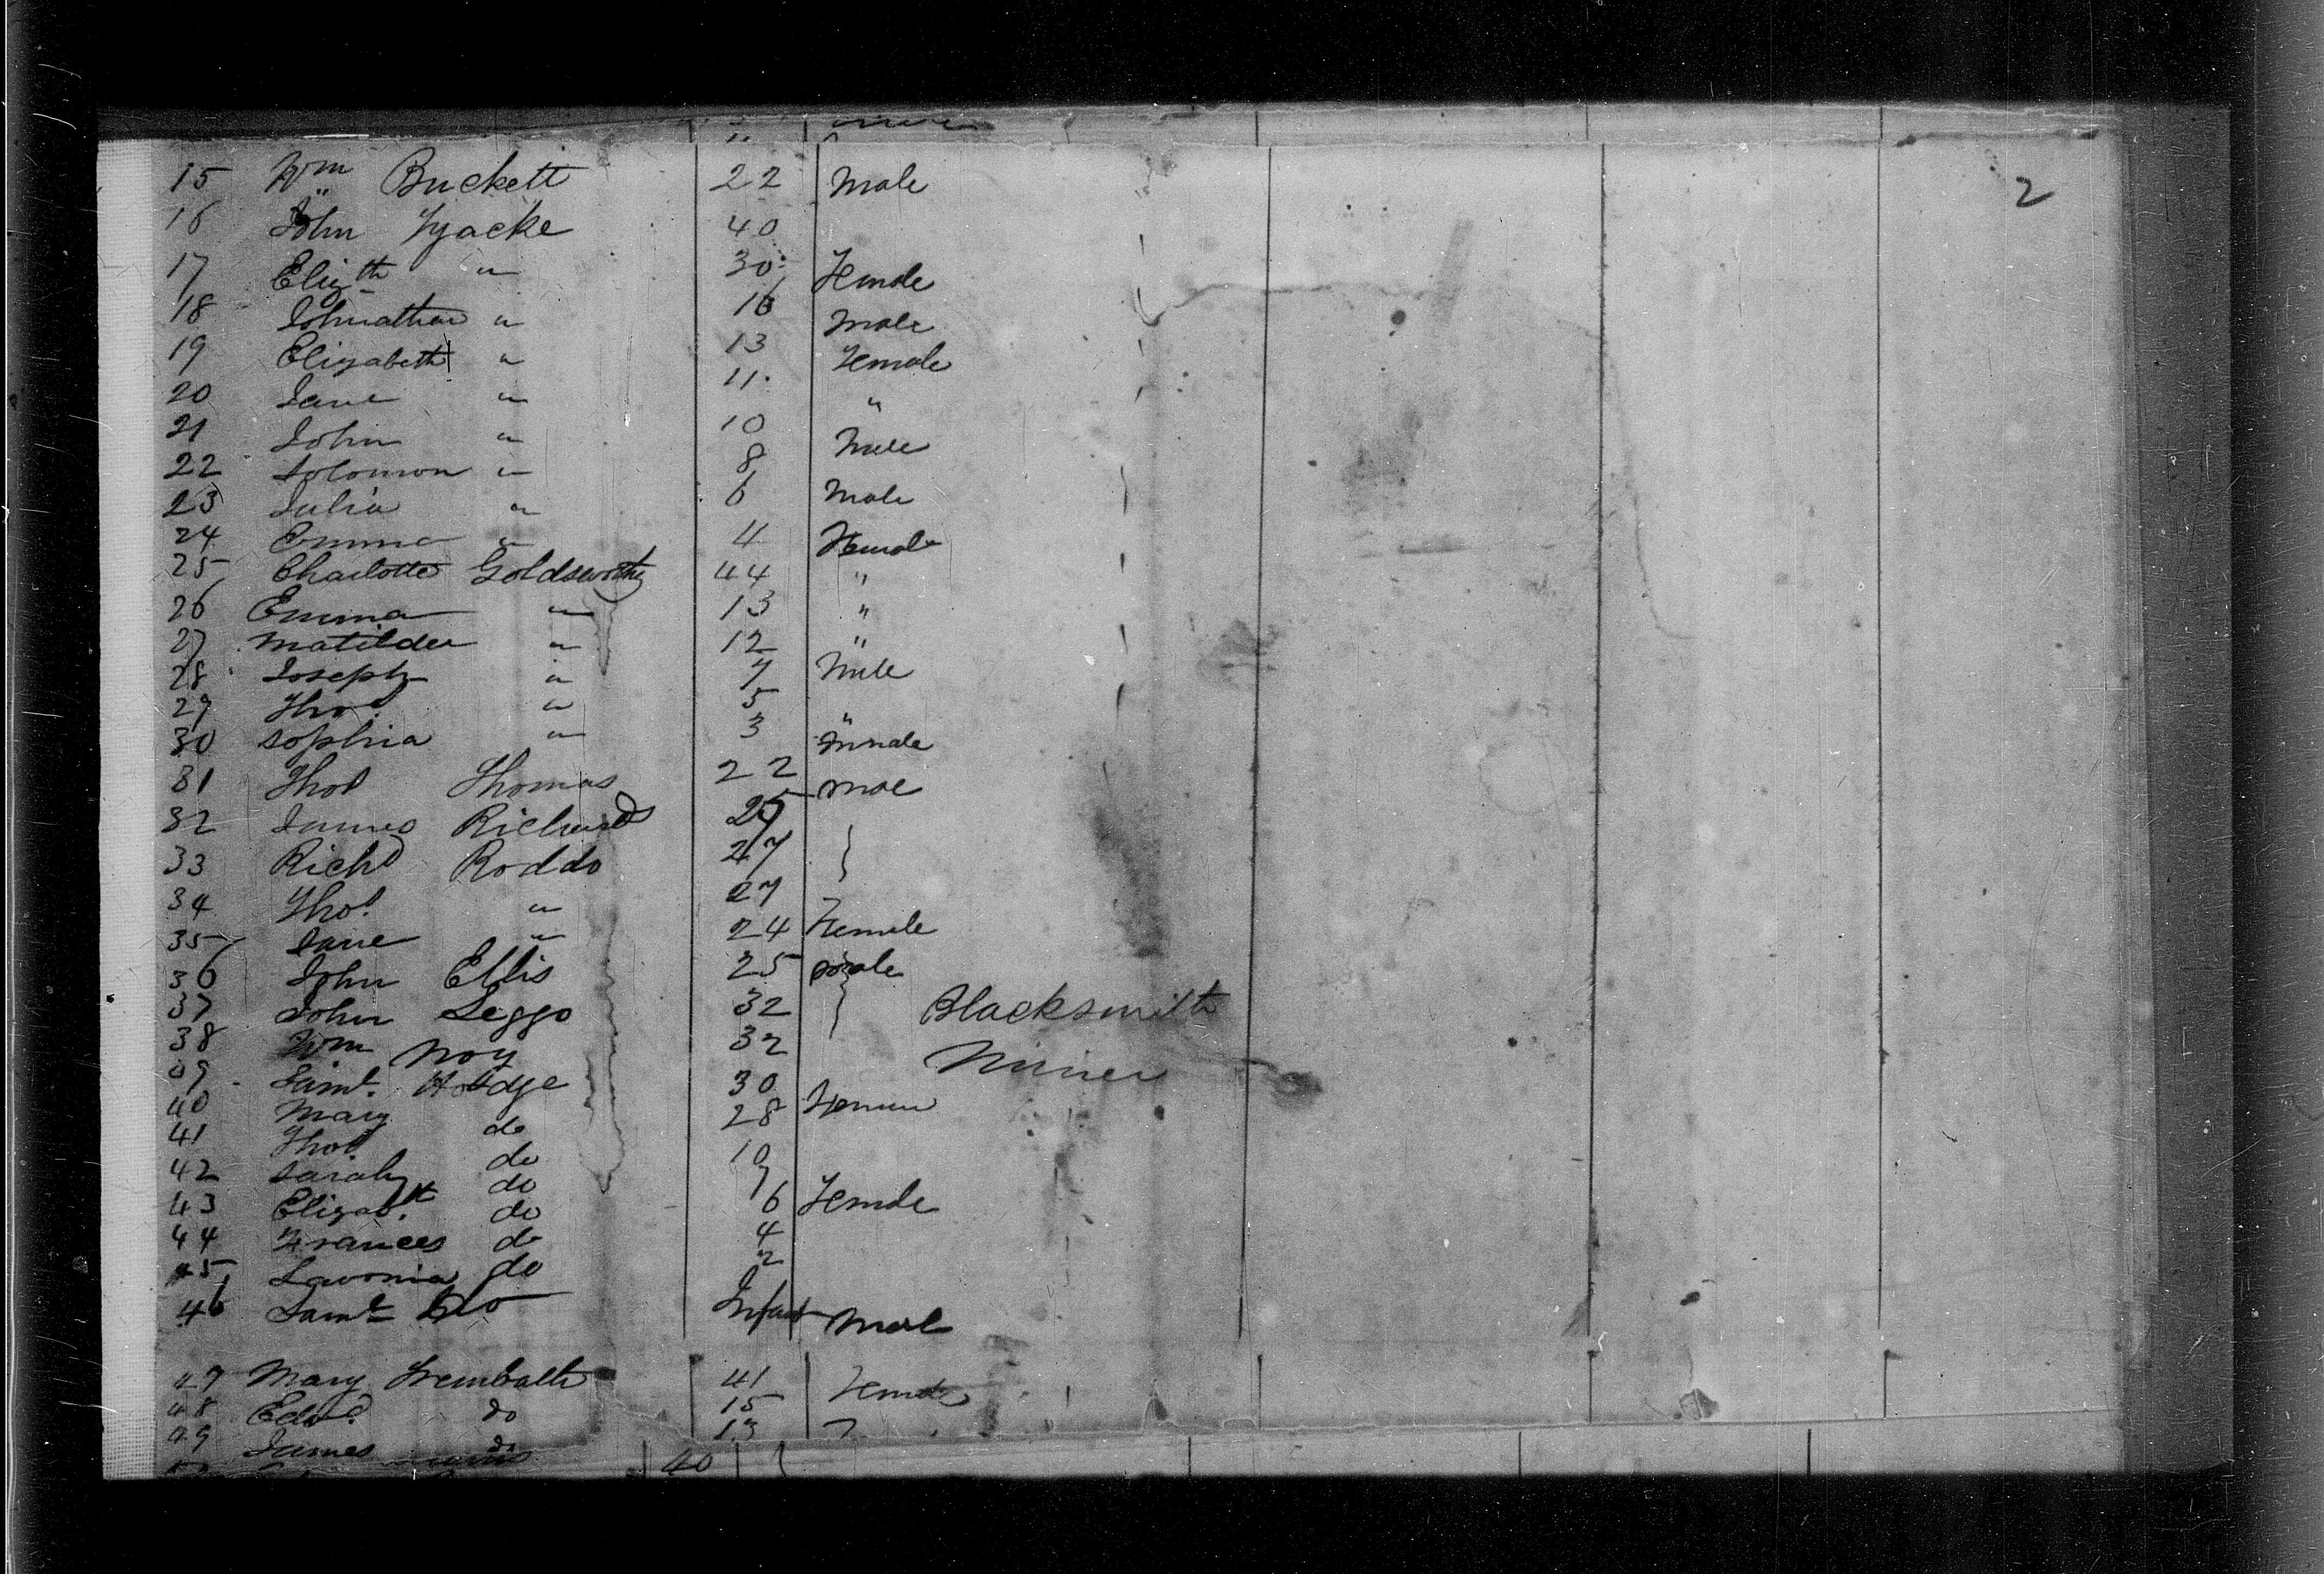 2
15 Wm " Buckett 22 Male
16 John Tyacke 40
17 Elizth " 30 Female
18 Johnathan " 16 Male
19 Elizabeth " 13 Female
20 Jane " 11 "
21 John " 10 Male
22 Solomon " 8 Male
23 Julia " 6
24 Emma " 4 Female
25 Charlotte Goldsworthy 44 "
26 Emma " 13 "
27 Matilda " 12 "
28 Joseph " 7 Male
29 Thos. " 5 "
30 Sophia " 3 Female
31 Thos Thomas 22 Male
32 James Richards 25
33 Richd Roddo 27
34 Thos. " 27
35 Jane " 24 Female
36 John Ellis 25 Male
37 John Leggo 32 Blacksmith
38 Wm Noy 32 Miner
39 Saml. Hodge 30
40 Mary do 28 Female
41 Thos. do 10
42 Sarah do 7
43 Elizabth do 6 Female
44 Frances do 4
45 Lavonia do 2
46 Saml Do Infant Male
47 Mary Trembath 41 Female
48 Edwd. do 15
49 James do 13
40